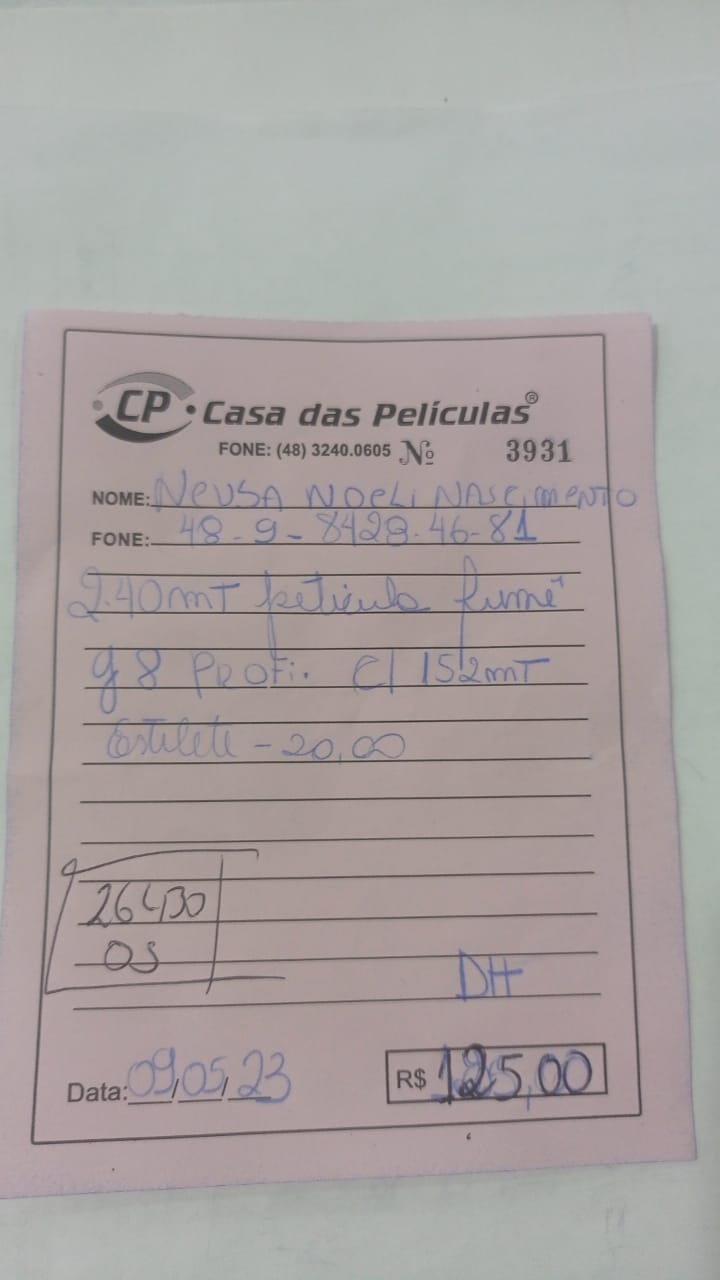 CP • Casa das Películas®
FONE: (48) 3240.0605 Nº 3931
NOME: Neusa Noeli Nascimento
FONE: 48-9-8428.46-81
2.40mt película fumê
g8 Profi. c/ 152mt
Estilete - 20,00
26430
OS
DH
Data: 09/05/23 R$ 125,00